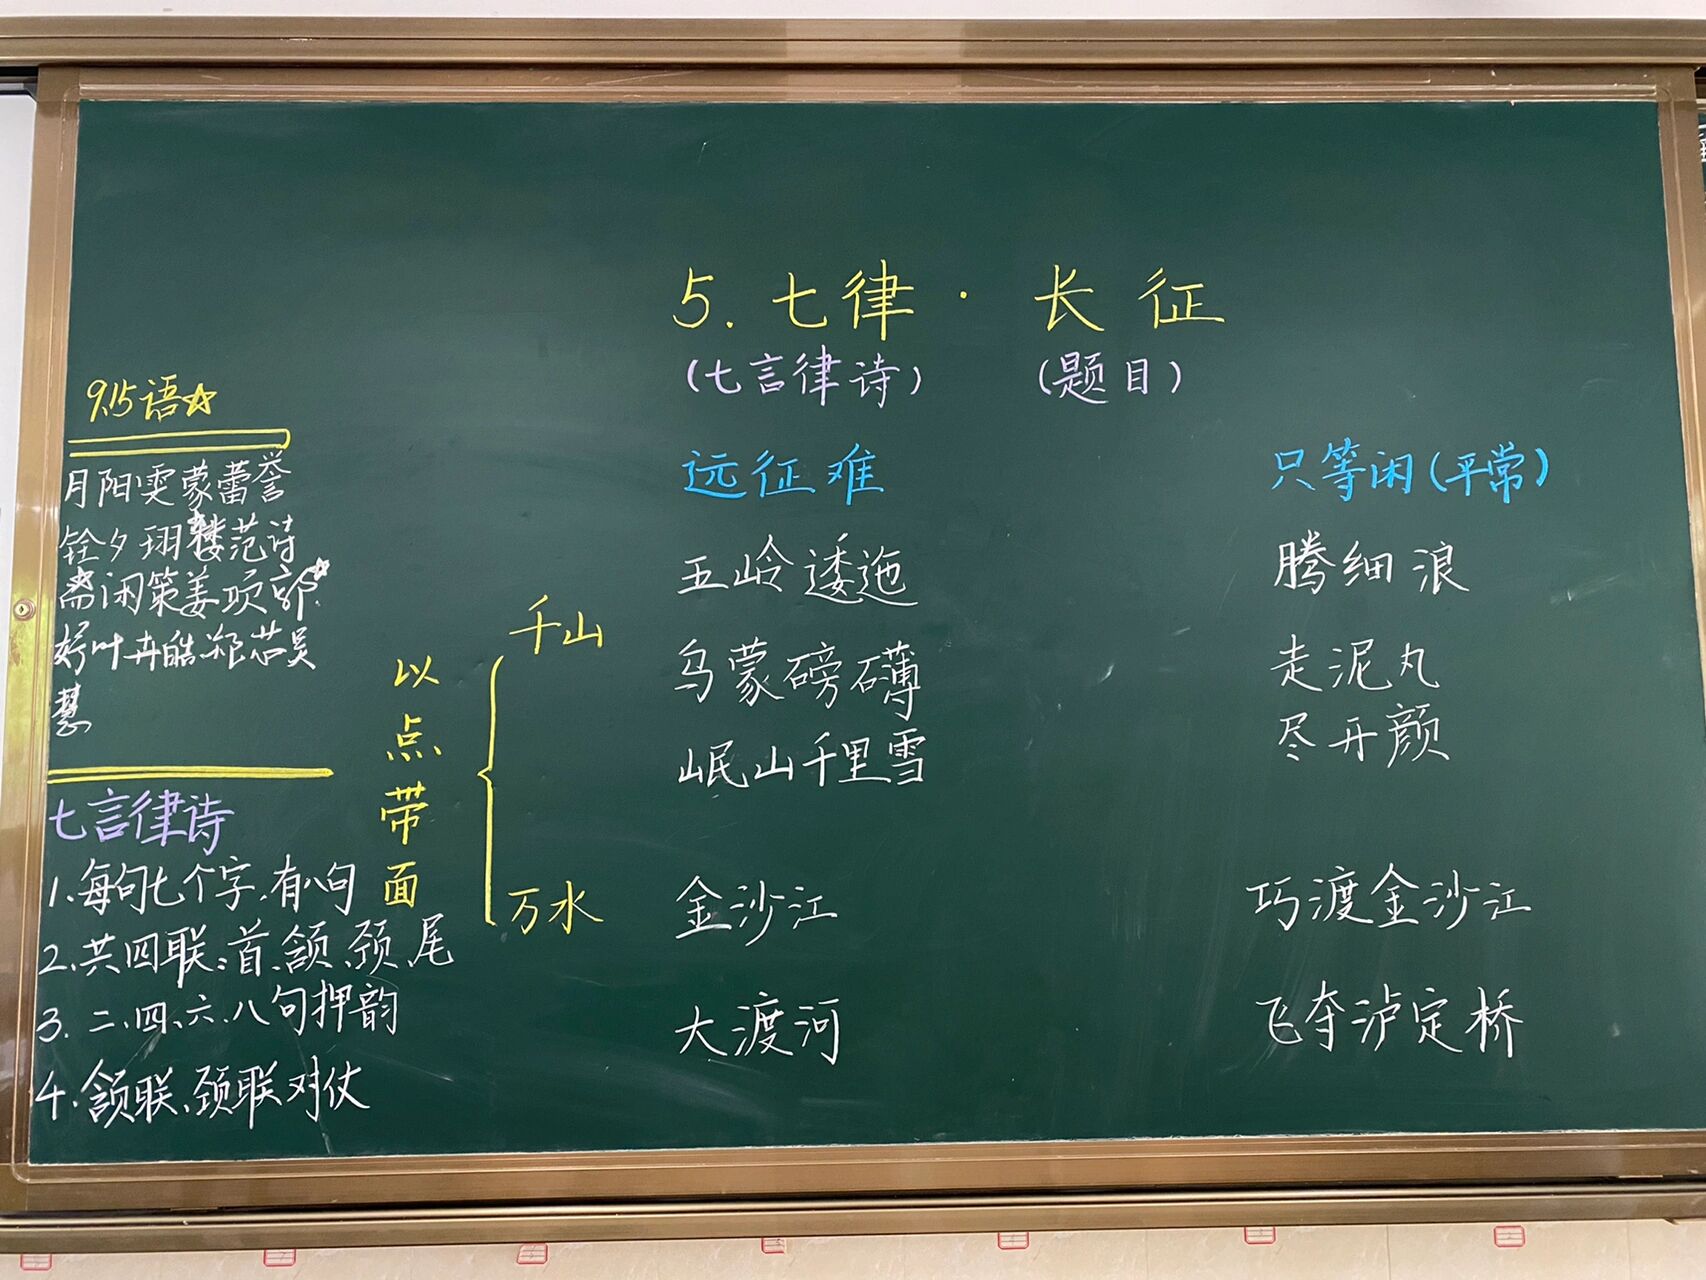 5.七律·长征
(七言律诗) (题目)
9.15语☆
月阳雯蒙蕾誉
铨夕珝楼范诗
闲策姜项郭
妤叶卉皓郑芯吴
慧
七言律诗
1.每句七个字,有八句
2.共四联:首、颔、颈、尾
3.二、四、六、八句押韵
4.颔联、颈联对仗
以点带面
千山
万水
远征难 只等闲(平常)
五岭逶迤 腾细浪
乌蒙磅礴 走泥丸
岷山千里雪 尽开颜
金沙江 巧渡金沙江
大渡河 飞夺泸定桥